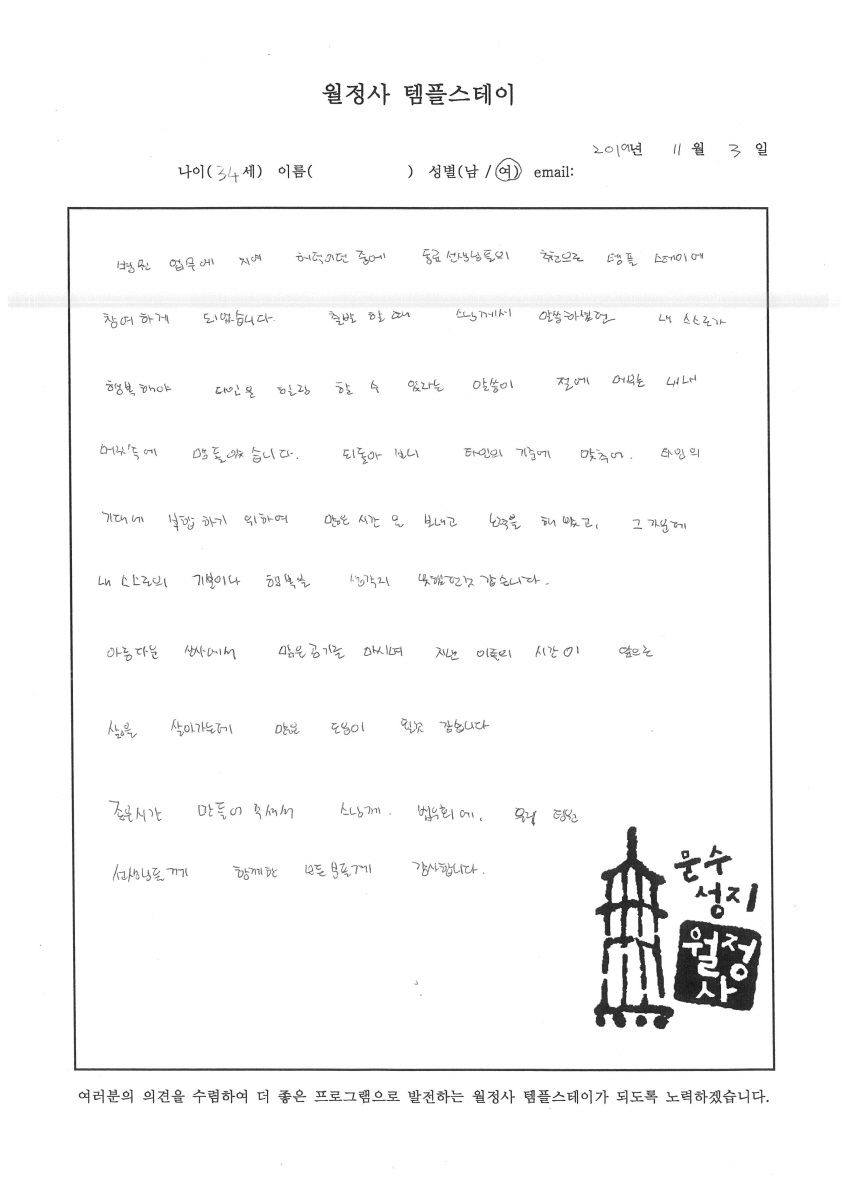 월정사 템플스테이
2019년 11월 3일
나이(34세) 이름( ) 성별(남 / 여) email:
병원 업무에 지쳐 허덕이던 중에 동료선생님들의 추천으로 템플 스테이에
참여하게 되었습니다. 출발 할때 스님께서 말씀하셨던 내 스스로가
행복해야 타인을 사랑 할 수 있다는 말씀이 절에 머무는 내내
머릿속에 맴돌았습니다. 되돌아 보니 타인의 기준에 맞추어, 타인의
기대에 부합하기 위하여 많은 시간을 보내고 노력을 해 왔고, 그 때문에
내 스스로의 기분이나 행복을 생각지 못했던것 같습니다.
아름다운 산사에서 맑은공기를 마시며 지낸 이틀의 시간이 앞으로
삶을 살아가는데 많은 도움이 될것 같습니다
좋은시간 만들어 주셔서 스님께, 법우회에, 우리 병원
선생님들께 함께한 모든분들께 감사합니다.
문수
성지
월정
사
여러분의 의견을 수렴하여 더 좋은 프로그램으로 발전하는 월정사 템플스테이가 되도록 노력하겠습니다.